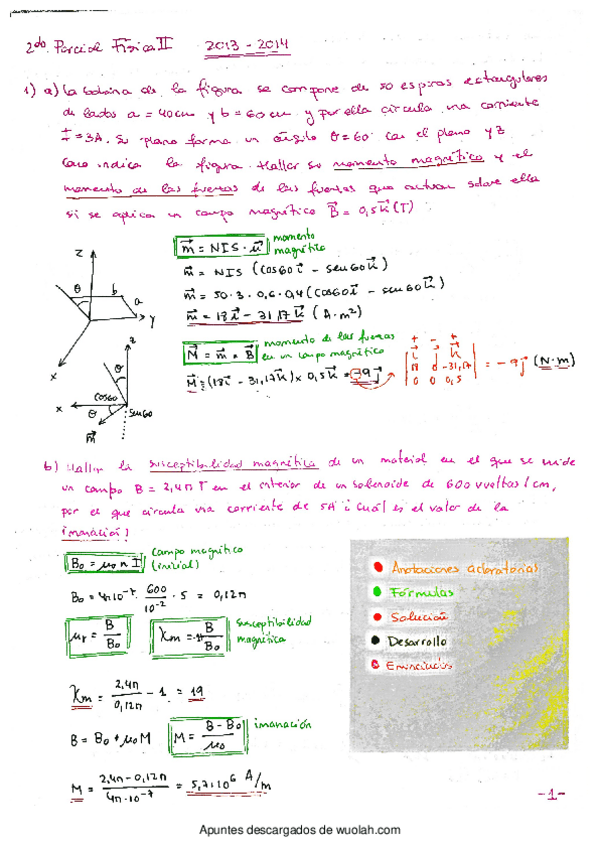 2do Parcial Física II 2013 - 2014
1) a) La bobina de la figura se compone de 50 espiras rectangulares
de lados a = 40cm y b = 60 cm y por ella circula una corriente
I = 3A. Su plano forma un ángulo θ = 60 con el plano yz
como indica la figura. Hallar su momento magnético y el
momento de las fuerzas de las fuerzas que actúan sobre ella
si se aplica un campo magnético B⃗ = 0,5k⃗ (T)
m⃗ = NIS · u⃗ momento magnético
m⃗ = NIS (cos60 i⃗ - sen60 k⃗)
m⃗ = 50 · 3 · 0,6 · 0,4 (cos60 i⃗ - sen60 k⃗)
m⃗ = 18 i⃗ - 31,17 k⃗ (A·m²)
z
θ
b
a
y
x
M⃗ = m⃗ × B⃗ momento de las fuerzas en un campo magnético
M⃗ = (18i⃗ - 31,17k⃗) × 0,5k⃗ = -9 j⃗
+ - +
i⃗ j⃗ k⃗
18 0 -31,17
0 0 0,5
= -9 j⃗ (N·m)
z
θ
cos60
x
θ
sen60
m⃗
b) Hallar la susceptibilidad magnética de un material en el que se mide
un campo B = 2,4π T en el interior de un solenoide de 600 vueltas / cm,
por el que circula una corriente de 5A ¿Cuál es el valor de la
imanación?
B₀ = μ₀ n I campo magnético (inicial)
B₀ = 4π·10⁻⁷ · 600/10⁻² · 5 = 0,12π
μr = B/B₀
susceptibilidad magnética
χm = 2,4π/0,12π - 1 = 19
B = B₀ + μ₀M M = B - B₀/μ₀ imanación
M = 2,4π - 0,12π/4π·10⁻⁷ = 5,7·10⁶ A/m
Anotaciones aclaratorias
Fórmulas
Solución
Desarrollo
Enunciados
-1-
Apuntes descargados de wuolah.com